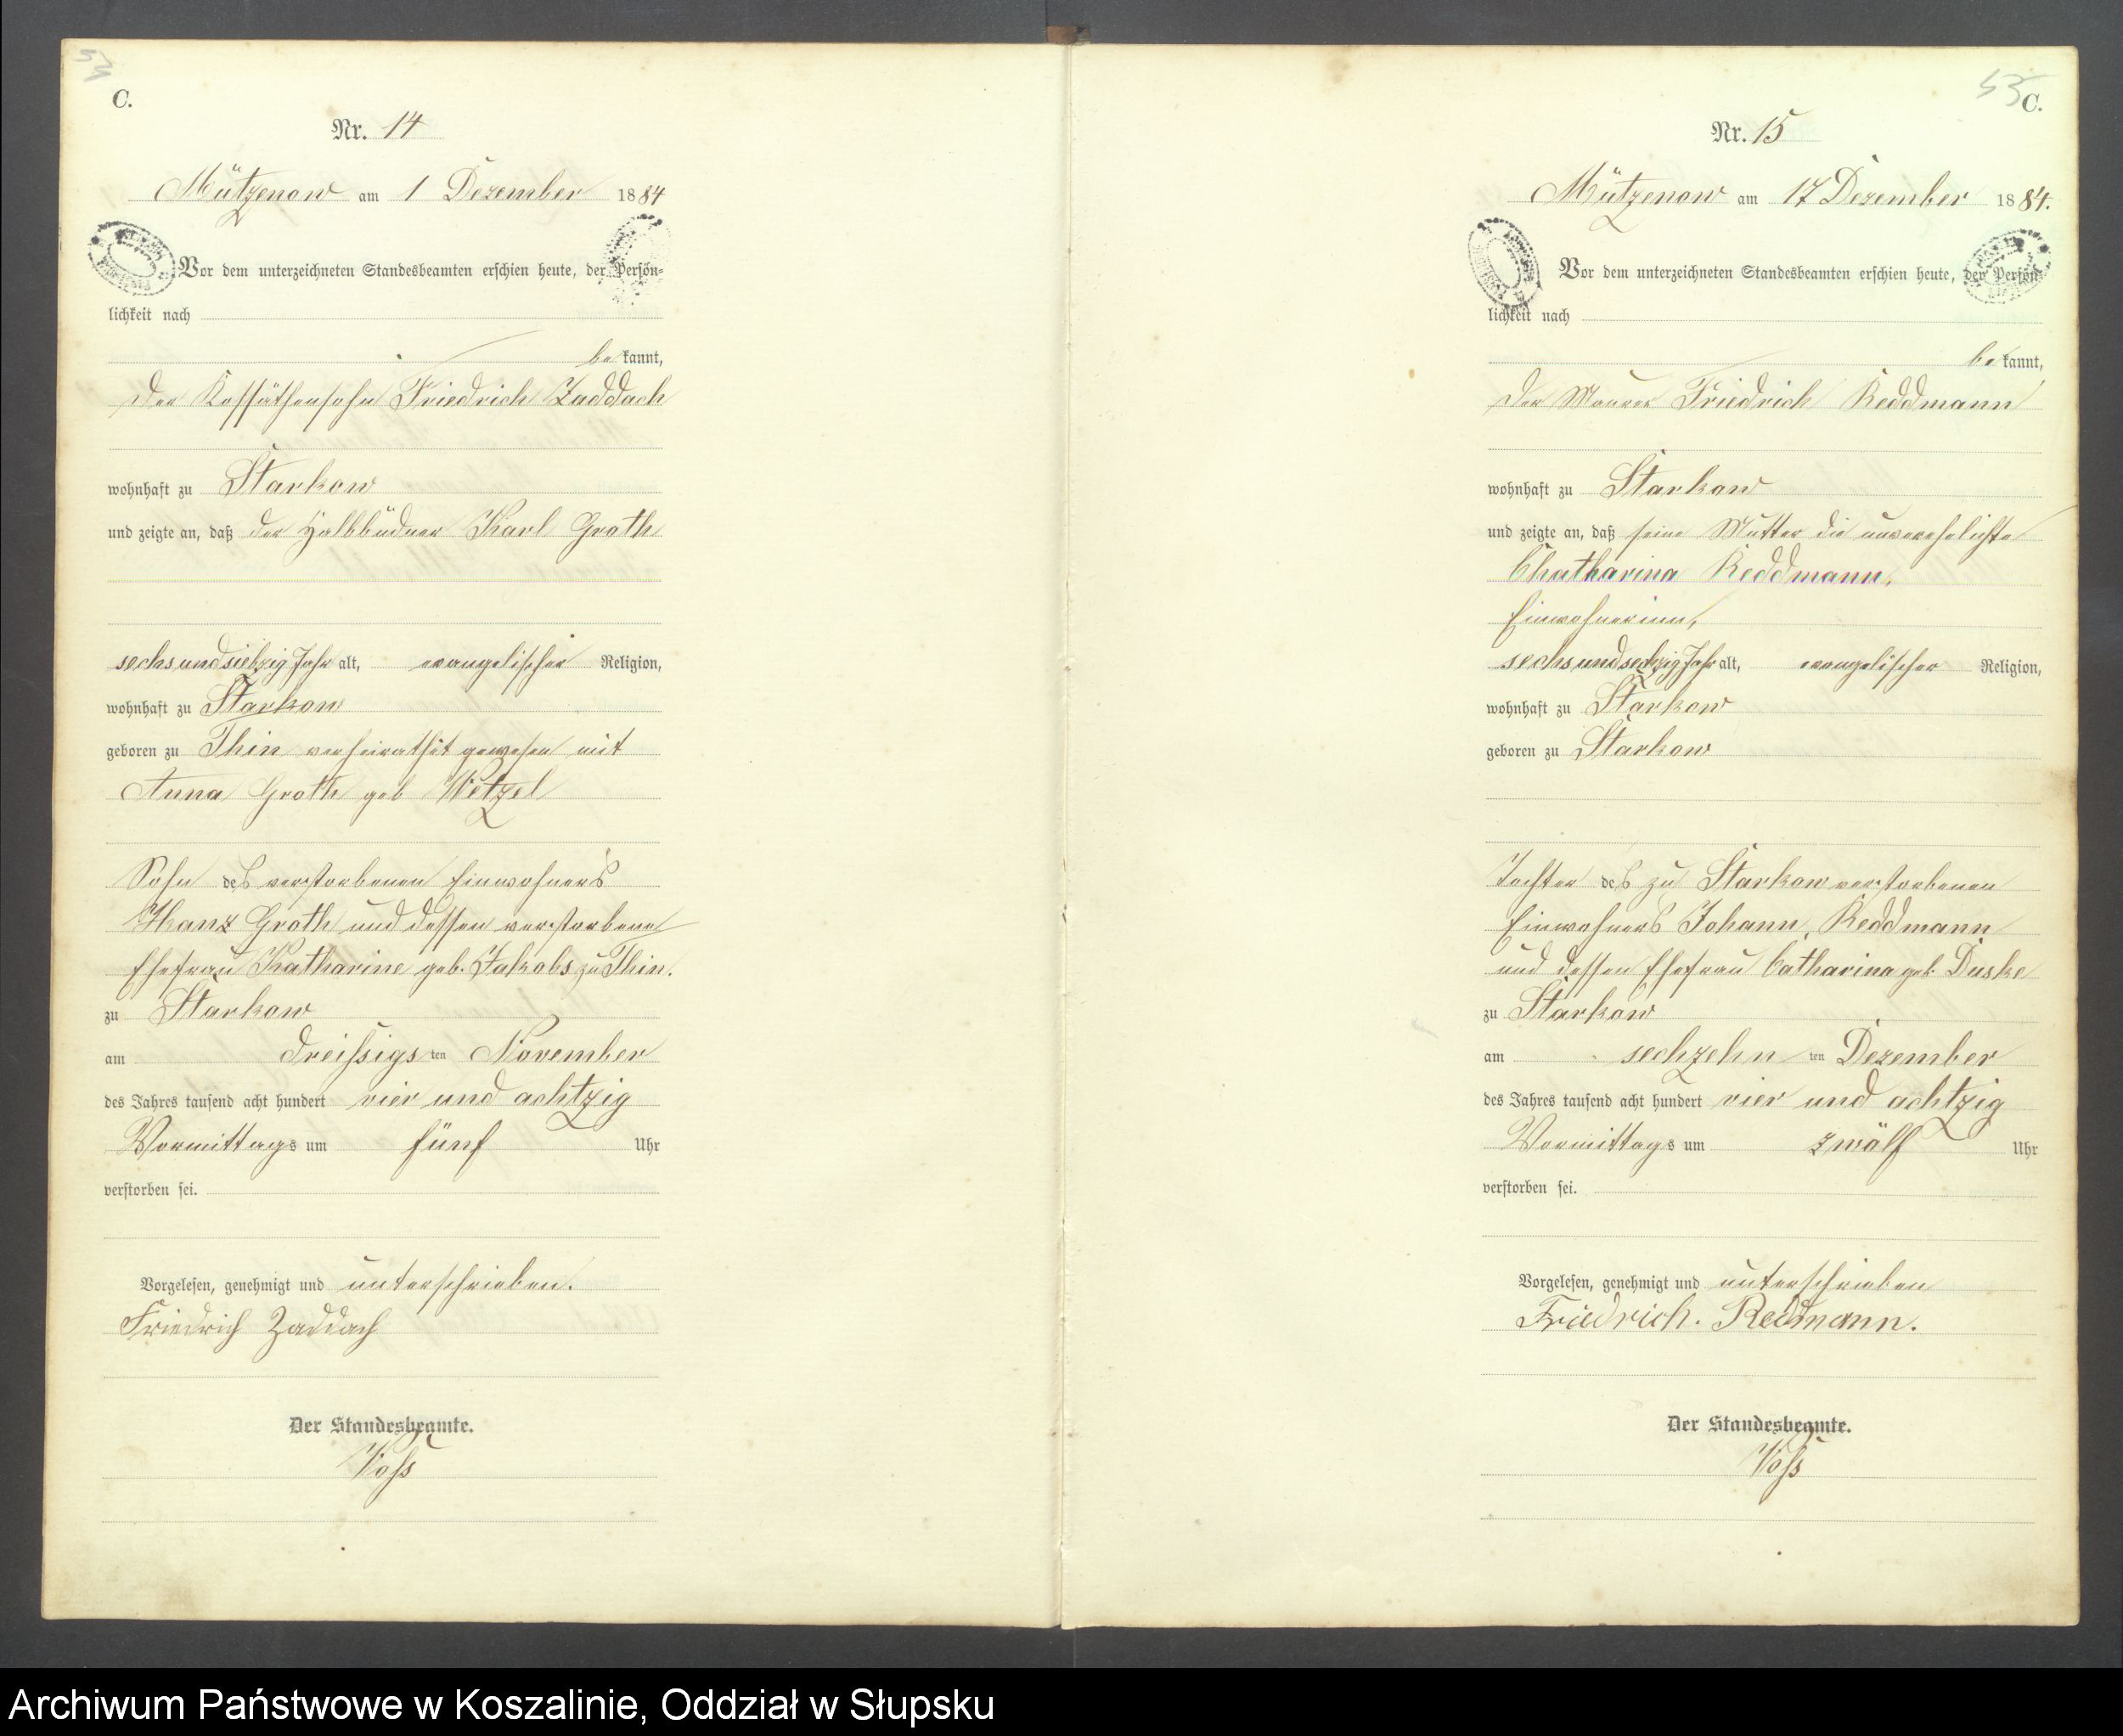 54
C.
Nr. 14
Mützenow am 1 Dezember 1884
Vor dem unterzeichneten Standesbeamten erschien heute, der Persön-
lichkeit nach
bekannt,
der Kossäthensohn Friedrich Zaddach
wohnhaft zu Starkow
und zeigte an, daß der Halbbüdner Karl Groth
sechsundsiebzig Jahr alt, evangelischer Religion,
wohnhaft zu Starkow
geboren zu Thin verheirathet gewesen mit
Anna Groth geb Wetzel
Sohn des verstorbenen Einwohners
Hanz Groth und dessen verstorbene
Ehefrau Katharine geb. Jakobs zu Thin.
zu Starkow
am dreissigsten November
des Jahres tausend acht hundert vier und achtzig
Vormittags um fünf Uhr
verstorben sei.
Vorgelesen, genehmigt und unterschrieben.
Friedrich Zaddach
Der Standesbeamte.
Voss
55
C.
Nr. 15
Mützenow am 17 Dezember 1884.
Vor dem unterzeichneten Standesbeamten erschien heute, der Persön-
lichkeit nach
bekannt,
der Maurer Friedrich Keddmann
wohnhaft zu Starkow
und zeigte an, daß seine Mutter die unverehelichte
Chatharina Keddmann,
Einwohnerinn,
sechsundsechzig Jahr alt, evangelischer Religion,
wohnhaft zu Starkow
geboren zu Starkow
Tochter des zu Starkow verstorbenen
Einwohners Johann Keddmann
und dessen Ehefrau Catharina geb. Duske
zu Starkow
am sechzehnten Dezember
des Jahres tausend acht hundert vier und achtzig
Vormittags um zwölf Uhr
verstorben sei.
Vorgelesen, genehmigt und unterschrieben
Friedrich. Redmann.
Der Standesbeamte.
Voss
Archiwum Państwowe w Koszalinie, Oddział w Słupsku